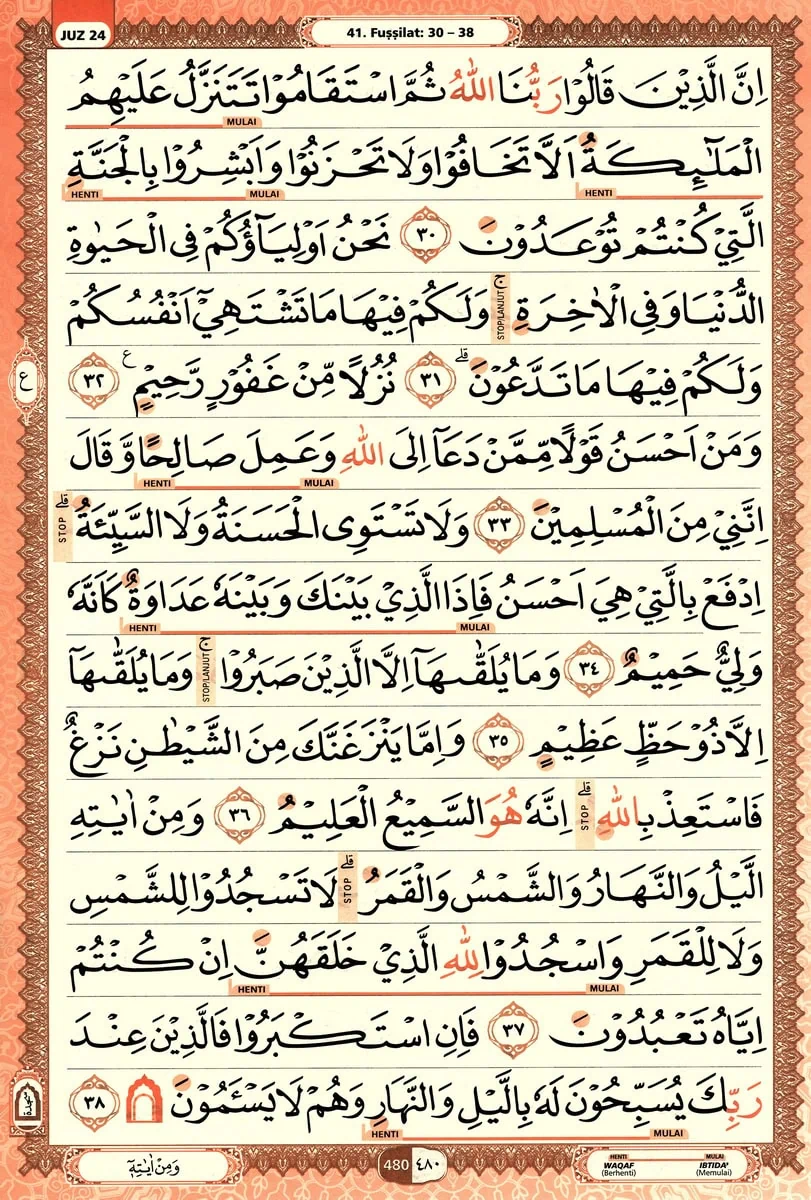 JUZ 24
41. Fuṣṣilat: 30 – 38
اِنَّ الَّذِيْنَ قَالُوْا رَبُّنَا اللّٰهُ ثُمَّ اسْتَقَامُوْا تَتَنَزَّلُ عَلَيْهِمُ
MULAI
الْمَلٰۤىِٕكَةُ اَلَّا تَخَافُوْا وَلَا تَحْزَنُوْا وَاَبْشِرُوْا بِالْجَنَّةِ
HENTI MULAI HENTI
الَّتِيْ كُنْتُمْ تُوْعَدُوْنَ ٣٠ نَحْنُ اَوْلِيَاۤؤُكُمْ فِى الْحَيٰوةِ
الدُّنْيَا وَفِى الْاٰخِرَةِ ۚ STOP/LANJUT وَلَكُمْ فِيْهَا مَا تَشْتَهِيْٓ اَنْفُسُكُمْ
ع
وَلَكُمْ فِيْهَا مَا تَدَّعُوْنَ ۗ ٣١ نُزُلًا مِّنْ غَفُوْرٍ رَّحِيْمٍ ࣖ ٣٢
وَمَنْ اَحْسَنُ قَوْلًا مِّمَّنْ دَعَآ اِلَى اللّٰهِ وَعَمِلَ صَالِحًا وَّقَالَ
HENTI MULAI
اِنَّنِيْ مِنَ الْمُسْلِمِيْنَ ٣٣ وَلَا تَسْتَوِى الْحَسَنَةُ وَلَا السَّيِّئَةُ ۗ STOP
اِدْفَعْ بِالَّتِيْ هِيَ اَحْسَنُ فَاِذَا الَّذِيْ بَيْنَكَ وَبَيْنَهٗ عَدَاوَةٌ كَاَنَّهٗ
HENTI MULAI
وَلِيٌّ حَمِيْمٌ ٣٤ وَمَا يُلَقّٰىهَآ اِلَّا الَّذِيْنَ صَبَرُوْا ۚ STOP/LANJUT وَمَا يُلَقّٰىهَآ
اِلَّا ذُوْ حَظٍّ عَظِيْمٍ ٣٥ وَاِمَّا يَنْزَغَنَّكَ مِنَ الشَّيْطٰنِ نَزْغٌ
فَاسْتَعِذْ بِاللّٰهِ ۗ STOP اِنَّهٗ هُوَ السَّمِيْعُ الْعَلِيْمُ ٣٦ وَمِنْ اٰيٰتِهِ
الَّيْلُ وَالنَّهَارُ وَالشَّمْسُ وَالْقَمَرُ ۗ STOP لَا تَسْجُدُوْا لِلشَّمْسِ
وَلَا لِلْقَمَرِ وَاسْجُدُوْا لِلّٰهِ الَّذِيْ خَلَقَهُنَّ اِنْ كُنْتُمْ
HENTI MULAI
اِيَّاهُ تَعْبُدُوْنَ ٣٧ فَاِنِ اسْتَكْبَرُوْا فَالَّذِيْنَ عِنْدَ
رَبِّكَ يُسَبِّحُوْنَ لَهٗ بِالَّيْلِ وَالنَّهَارِ وَهُمْ لَا يَسْـَٔمُوْنَ ۩ ٣٨
سجدة
HENTI MULAI
وَمِنْ اٰيٰتِهِ
480 ٤٨٠
HENTI MULAI
WAQAF IBTIDA'
(Berhenti) (Memulai)